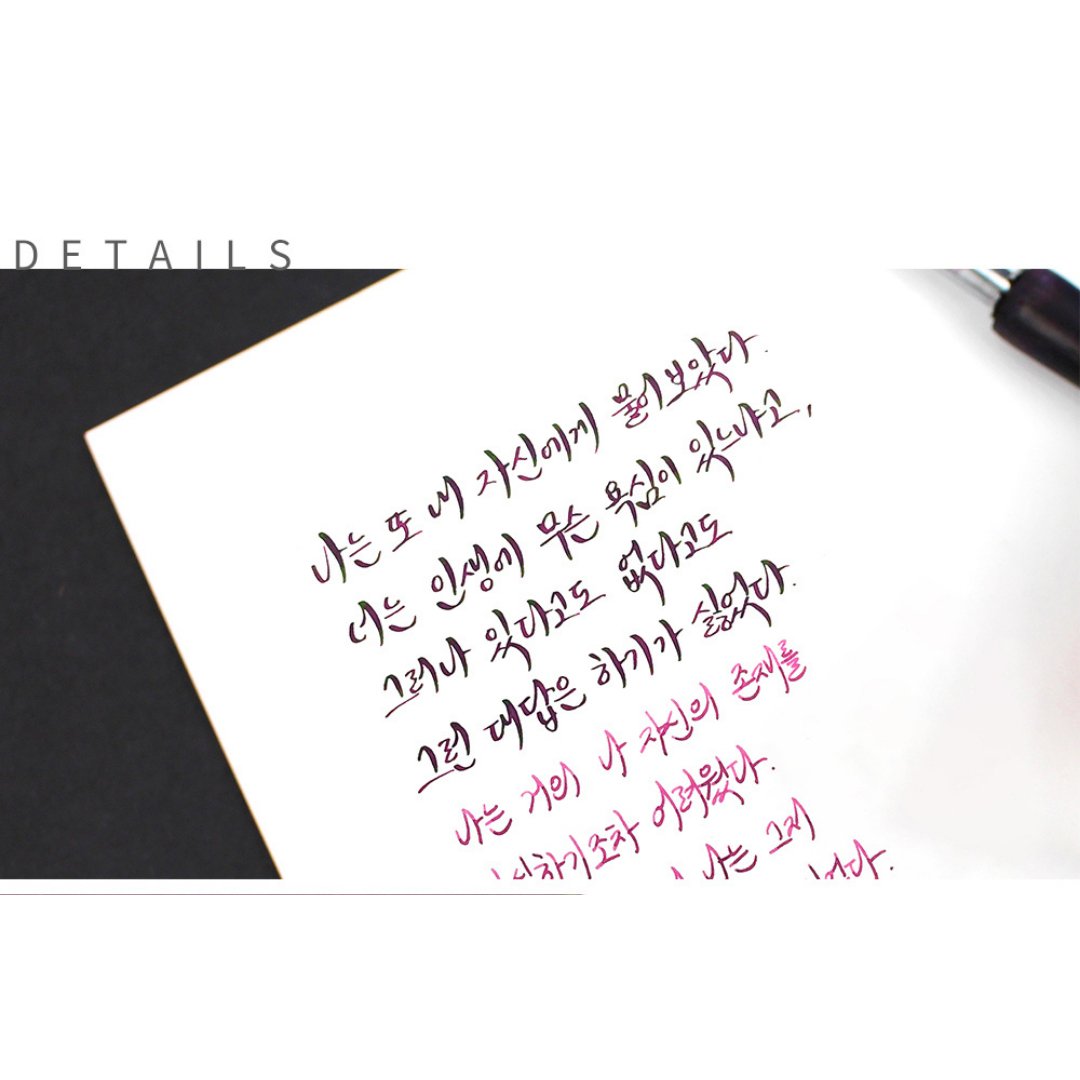 DETAILS
나는 또 내 자신에게 물어보았다.
너는 인생에 무슨 욕심이 있느냐고,
그러나 있다고도 없다고도
그런 대답은 하기가 싫었다.
나는 거의 나 자신의 존재를
인식하기조차 어려웠다.
나는 그저